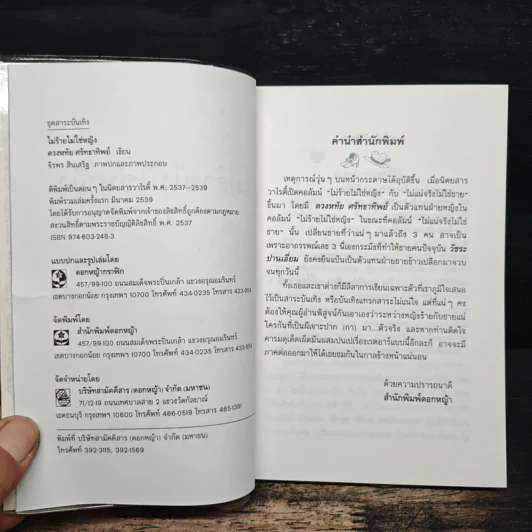 ชุดสาระบันเทิง
ไม่ร้ายไม่ใช่หญิง
ดวงหทัย ศรัทธาทิพย์ เขียน
จิรพร สินเสริฐ ภาพปกและภาพประกอบ
ตีพิมพ์เป็นตอนๆ ในนิตยสารวาไรตี้ พ.ศ. 2537-2539
พิมพ์รวมเล่มครั้งแรก มีนาคม 2539
โดยได้รับการอนุญาตจัดพิมพ์จากเจ้าของลิขสิทธิ์ถูกต้องตามกฎหมาย
สงวนสิทธิ์ตามพระราชบัญญัติลิขสิทธิ์ พ.ศ. 2537
ISBN 974-603-248-3
แบบปกและรูปเล่มโดย
ดอกหญ้ากราฟิก
457/99-100 ถนนสมเด็จพระปิ่นเกล้า แขวงอรุณอมรินทร์
เขตบางกอกน้อย กรุงเทพฯ 10700 โทรศัพท์ 434-0235 โทรสาร 434-3559
จัดพิมพ์โดย
สำนักพิมพ์ดอกหญ้า
457/99-100 ถนนสมเด็จพระปิ่นเกล้า แขวงอรุณอมรินทร์
เขตบางกอกน้อย กรุงเทพฯ 10700 โทรศัพท์ 434-0235 โทรสาร
จัดจำหน่ายโดย
บริษัทสามัคคีสาร (ดอกหญ้า) จำกัด (มหาชน)
71/12-19 ถนนเทศบาลสาย 2 แขวงวัดกัลยาณ์
เขตธนบุรี กรุงเทพฯ 10600 โทรศัพท์ 466-0519 โทรสาร
พิมพ์ที่ บริษัทสามัคคีสาร (ดอกหญ้า) จำกัด (มหาชน)
โทรศัพท์ 392-3115, 392-1569
คำนำสำนักพิมพ์
เหตุการณ์วุ่นๆ บนหน้ากระดาษได้อุบัติขึ้น เมื่อนิตยสาร
วาไรตี้เปิดคอลัมน์ "ไม่ร้ายไม่ใช่หญิง" กับ "ไม่แน่จริงไม่ใช่ชาย"
ขึ้นมา โดยมี ดวงหทัย ศรัทธาทิพย์ เป็นตัวแทนฝ่ายหญิงใน
คอลัมน์ "ไม่ร้ายไม่ใช่หญิง" ในขณะที่คอลัมน์ "ไม่แน่จริงไม่ใช่
ชาย" นั้น เปลี่ยนชายที่ว่าแน่ๆ มาแล้วถึง 3 คน อาจเป็น
เพราะอาถรรพณ์เลข 3 นี้เองกระมังที่ทำให้ชายคนปัจจุบัน วัชระ
ปานเอี่ยม ยังคงยืนแป้นเป็นตัวแทนฝ่ายชายข้าวเปลือกมาจวบ
จนทุกวันนี้
ทั้งเธอและเขาต่างก็มีลีลาการเขียนเฉพาะตัวที่เราภูมิใจเสนอ
ไว้เป็นสาระบันเทิง หรือบันเทิงแทรกสาระไม่แน่ใจ แต่ที่แน่ๆ คง
ต้องให้คุณผู้อ่านพิสูจน์กันเอาเองว่าระหว่างหญิงร้ายกับชายแน่
ใครกันที่เป็นฝีเจาะปาก (กา) มา...ตัวจริง และหากท่านติดใจ
คารมดุเด็ดเผ็ดมันผสมปนเปเรื่องเรตอาร์แบบนี้อีกละก็ อาจจะมี
ภาคต่อออกมาให้ได้เชยชมกันในกาลข้างหน้าแน่นอน
ด้วยความปรารถนาดี
สำนักพิมพ์ดอกหญ้า